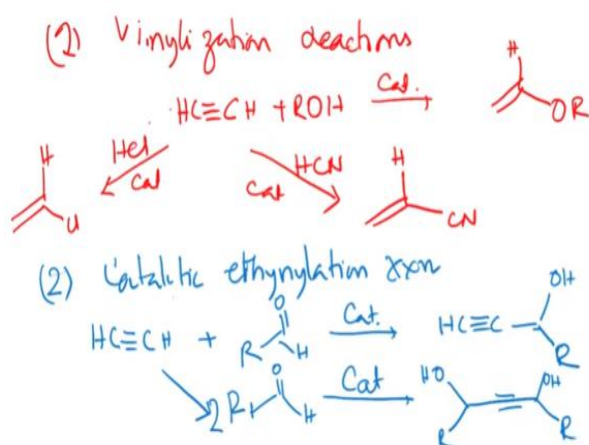 (2) Vinylization deactions
HC≡CH + ROH Cat. H OR
HCl Cat H Cl
HCN Cat H CN
(2) Catalitic ethynylation rxxn
HC≡CH + R O H Cat. HC≡C OH R
2 R O H Cat HO OH R R